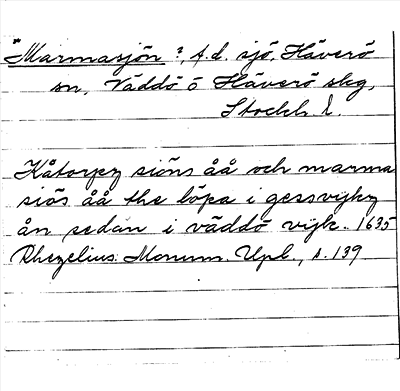 "Marmasjön", f.d. sjö, Häverö
sn, Väddö o Häverö skg,
Stockh. l.
Kåtorpz siöns åå och marma
siös åå the löpa i gessvijkz
ån sedan i väddö vijk. 1635
Rhezelius. Monum. Upl., s. 139